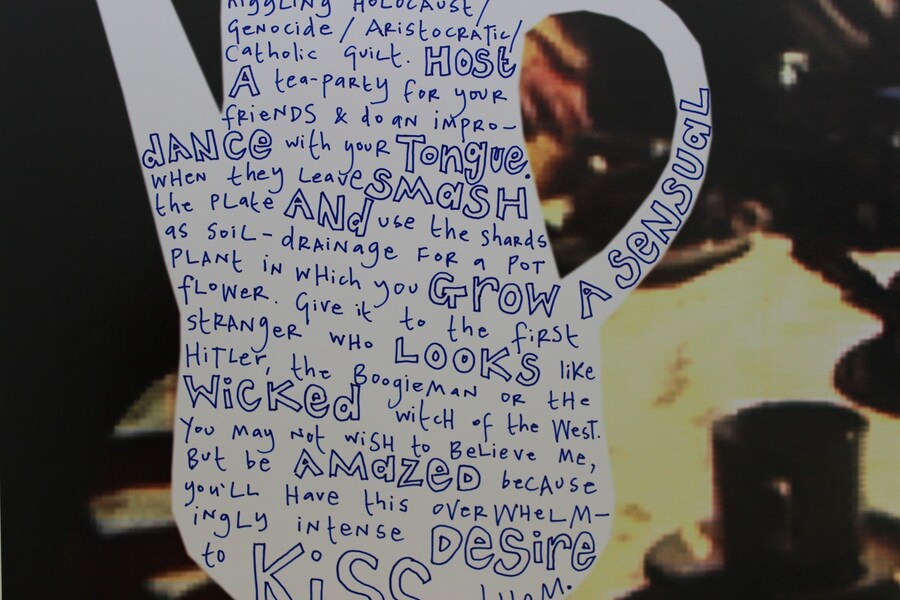 HOLOCAUST/
GENOCIDE / ARISTOCRATIC/
Catholic GUILT. HOST
A tea-party for your
friENDS & do an impro-
dANCe with your Tongue.
WHEN they Leave SMASH
the PLate ANd use the shards
as SOIL-dRAINage FOR a POT
PLANT in WHich you GROW A SENSUAL
fLOWER. Give it to the first
STRANGER WHO LOOKS like
HITLER, the BOOGIEMAN OR tHe
WicKed witcH of the West.
YOU May Not wiSH to BeLieve Me,
But be AMAZED because
you'LL Have this OVERWHELM-
iNGLY iNtENSE DESire
to KiSS